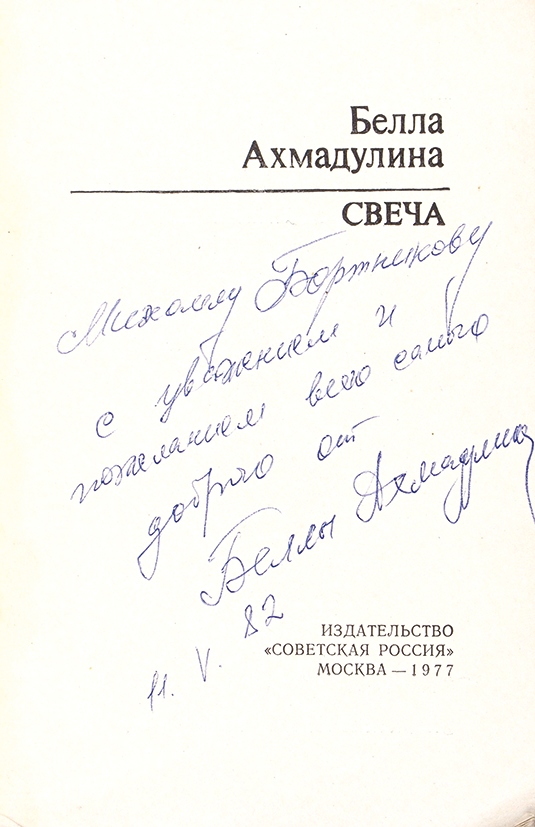 Белла
Ахмадулина
СВЕЧА
Михаилу Бортникову
с уважением и
пожеланием всего самого
доброго от
Беллы Ахмадулиной
11. V. 82
ИЗДАТЕЛЬСТВО
«СОВЕТСКАЯ РОССИЯ»
МОСКВА — 1977